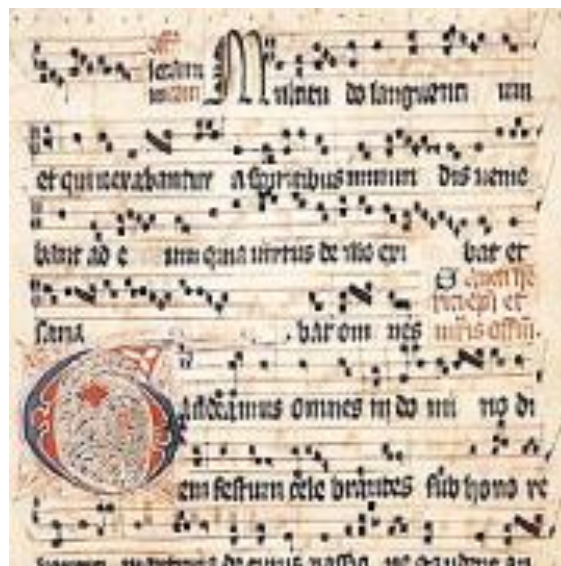 Multitu do languenti um
et qui uexabantur a spiritibus inmun dis uenie
bant ad e um quia uirtus de illo exi bat et
sana bat om nes
Gaudeamus omnes in do mi no di
em festum cele brantes sub hono re
de cuius passio ne gaudent an